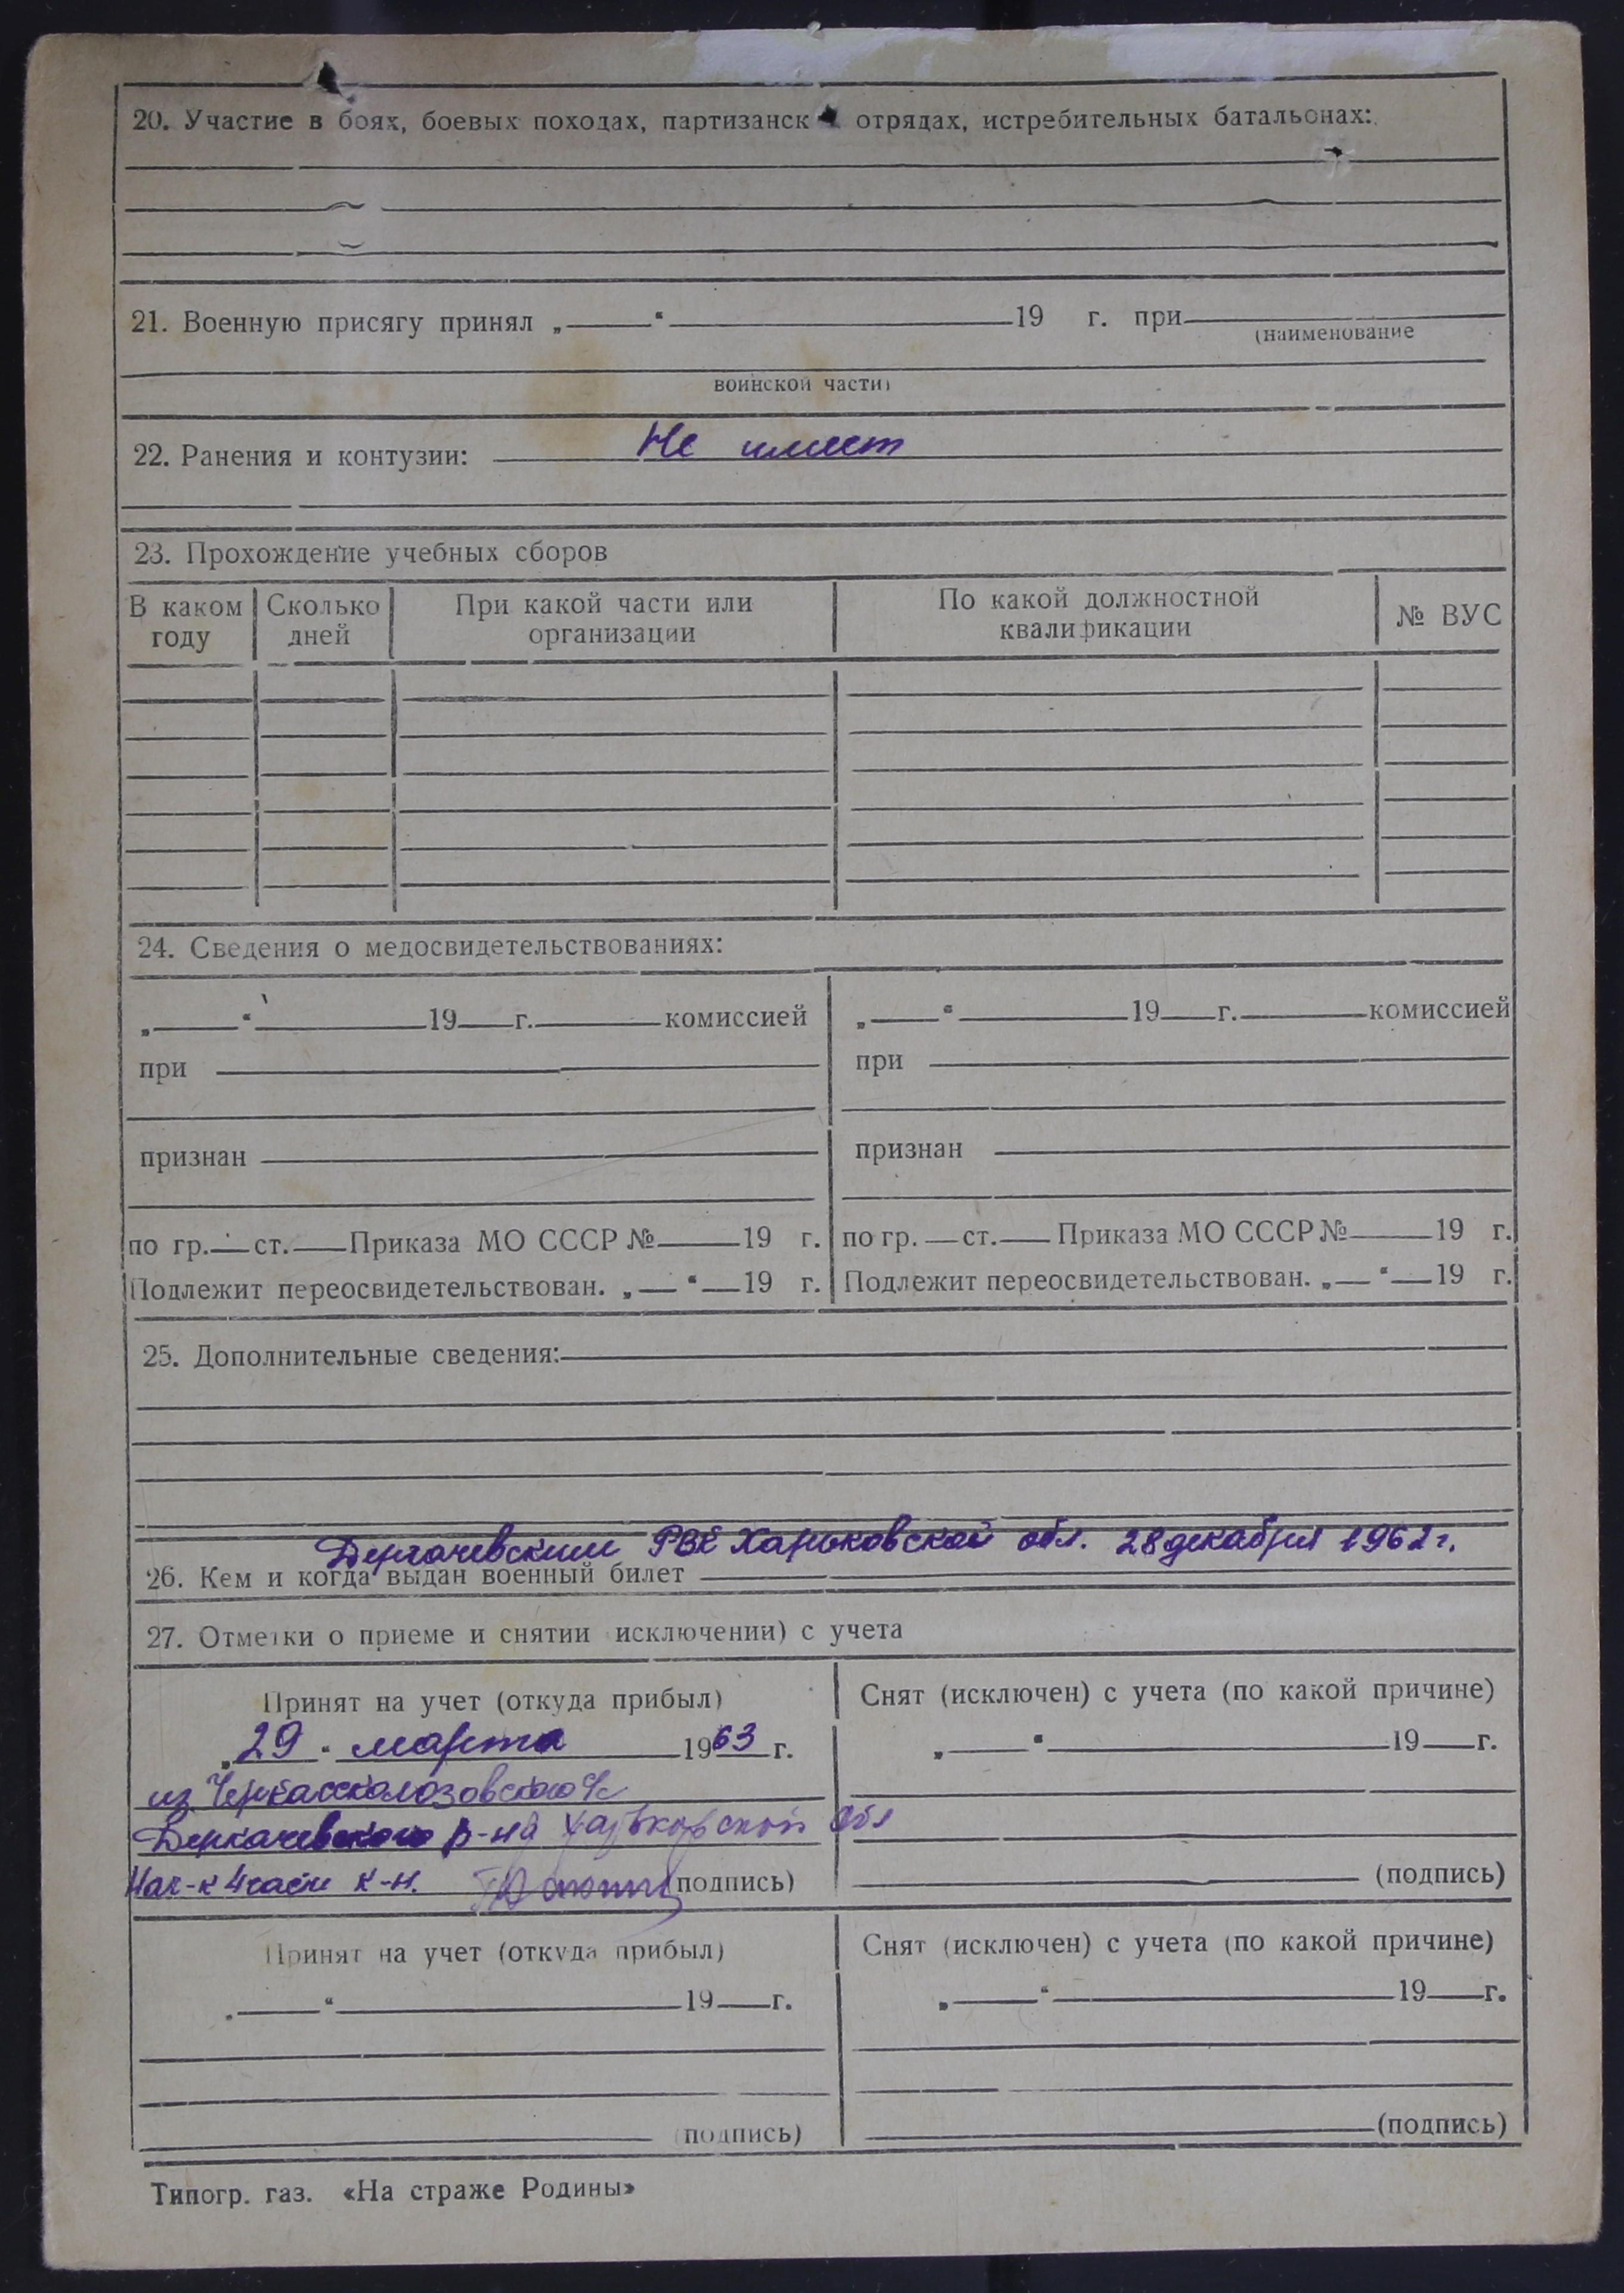 20. Участие в боях, боевых походах, партизанск отрядах, истребительных батальонах:
21. Военную присягу принял „ “ 19 г. при
(наименование
воинской части)
22. Ранения и контузии: Не имеет
23. Прохождение учебных сборов
В каком году Сколько дней При какой части или организации По какой должностной квалификации № ВУС
24. Сведения о медосвидетельствованиях:
„ “ 19 г. комиссией „ “ 19 г. комиссией
при при
признан признан
по гр. ст. Приказа МО СССР № 19 г. по гр. ст. Приказа МО СССР № 19 г.
Подлежит переосвидетельствован. „ “ 19 г. Подлежит переосвидетельствован. „ “ 19 г.
25. Дополнительные сведения:
Дергачевским РВК Харьковской обл. 28 декабря 1962 г.
26. Кем и когда выдан военный билет
27. Отметки о приеме и снятии исключении) с учета
Принят на учет (откуда прибыл) Снят (исключен) с учета (по какой причине)
„ 29 “ марта 1963 г. „ “ 19 г.
из Черкасско
р-на Харьковской обл
Нач-к 4 части к-н. (подпись) (подпись)
Принят на учет (откуда прибыл) Снят (исключен) с учета (по какой причине)
„ “ 19 г. „ “ 19 г.
(подпись) (подпись)
Типогр. газ. «На страже Родины»